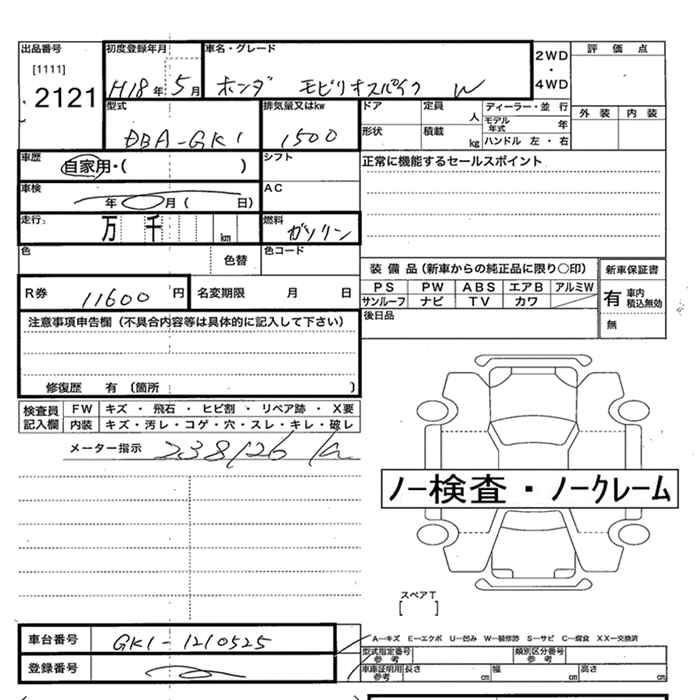 出品番号 初度登録年月 車名・グレード 2WD・4WD 評価点
[1111]
2121 H18年5月 ホンダ モビリオスパイク W
型式 排気量又はkw ドア 定員 人 ディーラー・並行 外装 内装
DBA-GK1 1500 形状 積載 kg モデル年式 年
ハンドル 左・右
車歴 自家用・( ) シフト 正常に機能するセールスポイント
車検 年 月 ( 日) AC
走行: 万 千 km 燃料 ガソリン
色 色替 色コード
装備品(新車からの純正品に限り〇印) 新車保証書
PS PW ABS エアB アルミW
サンルーフ ナビ TV カワ
有 車内積込無効
無
R券 11600円 名変期限 月 日
後日品
注意事項申告欄(不具合内容等は具体的に記入して下さい)
修復歴 有 (箇所 )
検査員記入欄 FW キズ・飛石・ヒビ割・リペア跡・X要
内装 キズ・汚レ・コゲ・穴・スレ・キレ・破レ
メーター指示 238126 k
ノー検査・ノークレーム
スペアT
[ ]
車台番号 GK1-1210525
登録番号
A―キズ E―エクボ U―凹み W―補修跡 S―サビ C―腐食 XX―交換済
型式指定番号 参考 類別区分番号 参考
車庫証明用 参考 長さ cm 幅 cm 高さ cm